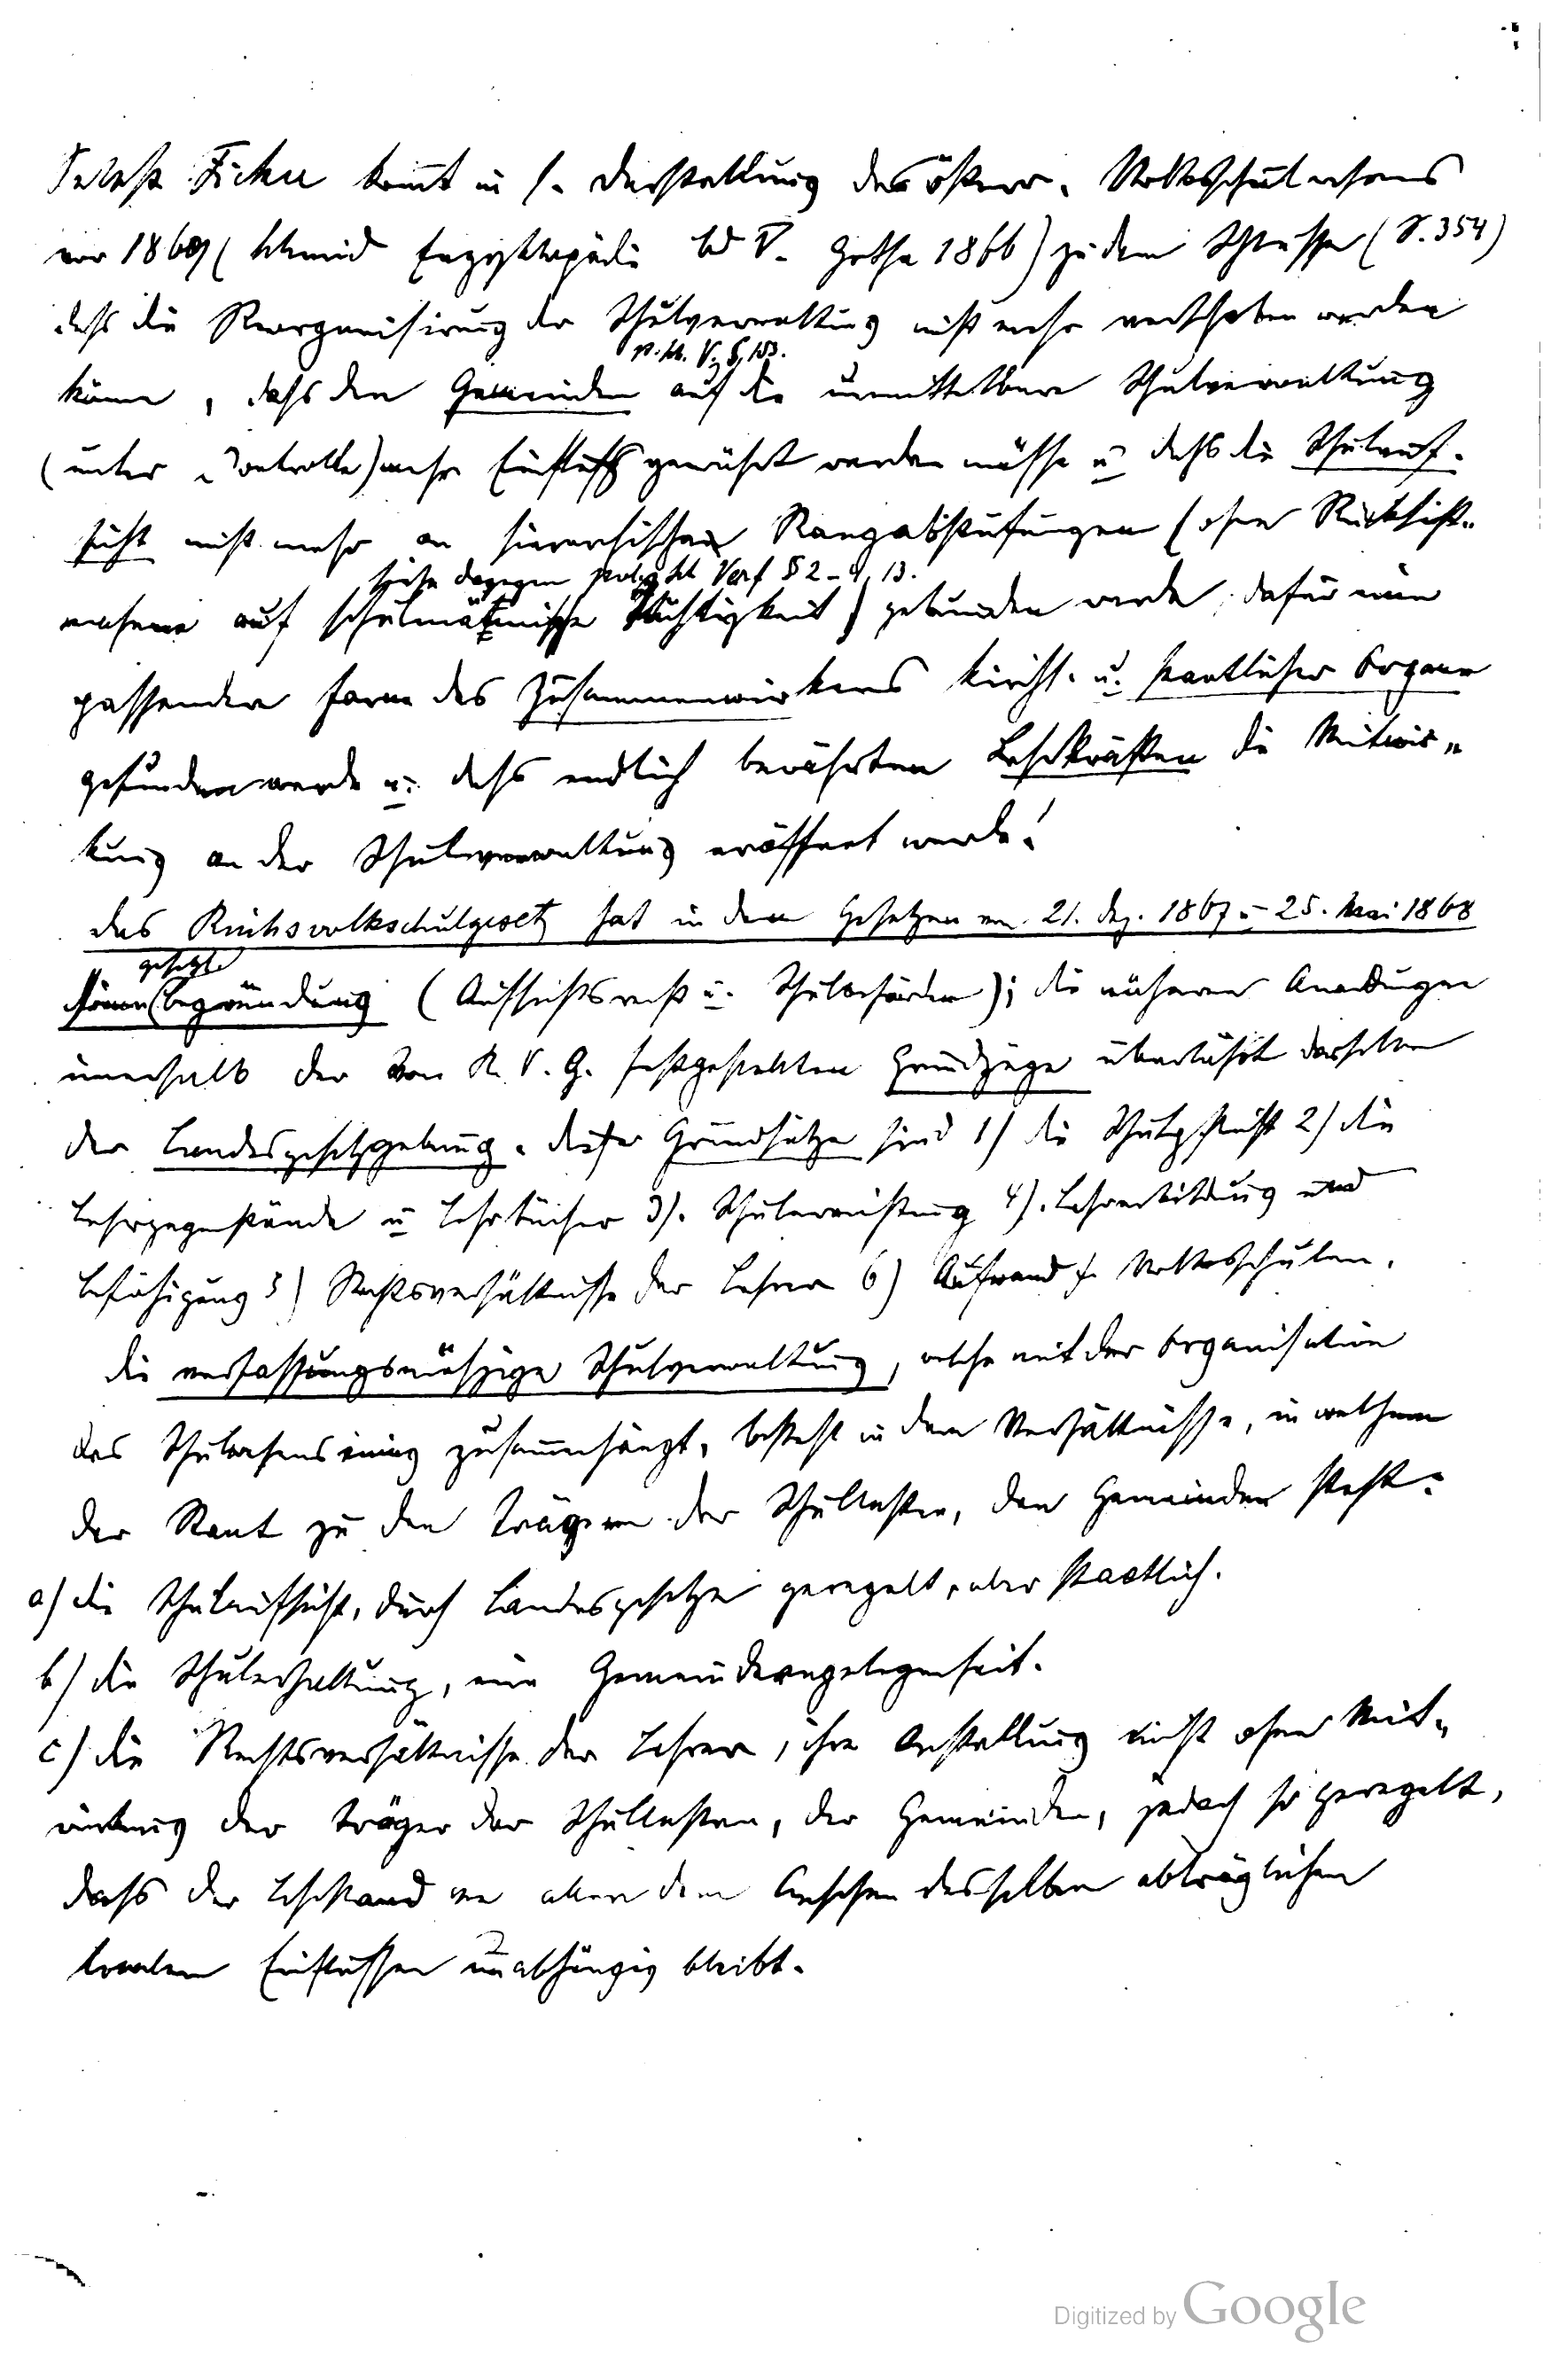 Selbst Ficker kommt in s. Darstellung des österr. Volksschulwesens
vor 1869 (Schmid Enzyklopädie Bd V. Gotha 1866) zu dem Schlusse (S. 354)
dass die Reorganisirung der Schulverwaltung nicht mehr verschoben werden
p. Sch. V. §, 153.
könne, dass den Gemeinden auf die unmittelbare Schulverwaltung
(unter Controlle) mehr Einfluss gewährt werden müsse u. dass die Schulauf-
sicht nicht mehr an hierarchischen Rangabstufungen (ohne Rücksicht-
siehe dagegen polit. Sch Verf § 2-4, 13.
nahme auf schulmännische Tüchtigkeit) gebunden werde, dafür eine
passendere Form des Zusammenwirkens kirchl. u. staatlicher Organe
gefunden werde u. dass endlich bewährten Lehrkräften die Mitwir-
kung an der Schulverwaltung eröffnet werde!
Das Reichsvolksschulgesetz hat in den Gesetzen vom 21. Dez. 1867 u. 25. Mai 1868
gesetzl.
Begründung (Aufsichtsrecht u. Schulbehörden); die näheren
innerhalb der vom R. V. G. festgestellten Grundzüge überlässt dasselbe
der Landesgesetzgebung. Diese Grundsätze sind 1) die Schulpflicht 2) die
Lehrgegenstände u Lehrbücher 3). Schulerrichtung 4). Lehrerbildung und
Befähigung 5) Rechtsverhältnisse der Lehrer 6) Aufwand f. Volksschulen.
Die verfassungsmässige Schulverwaltung, welche mit der Organisation
des Schulwesens innig zusammenhängt, besteht in dem Verhältnisse, in welchem
der Staat zu den Trägern der Schullasten, den Gemeinden steht:
a) die Schulaufsicht, durch Landesgesetze geregelt, aber staatlich.
b) die Schulerhaltung, eine Gemeindeangelegenheit.
c) die Rechtsverhältnisse der Lehrer, ihre Anstellung nicht ohne Mit-
wirkung der Träger der Schullasten, der Gemeinden, jedoch so geregelt,
dass der Lehrstand von allen dem Ansehen desselben abträglichen
localen Einflüssen unabhängig bleibt.
Digitized by Google